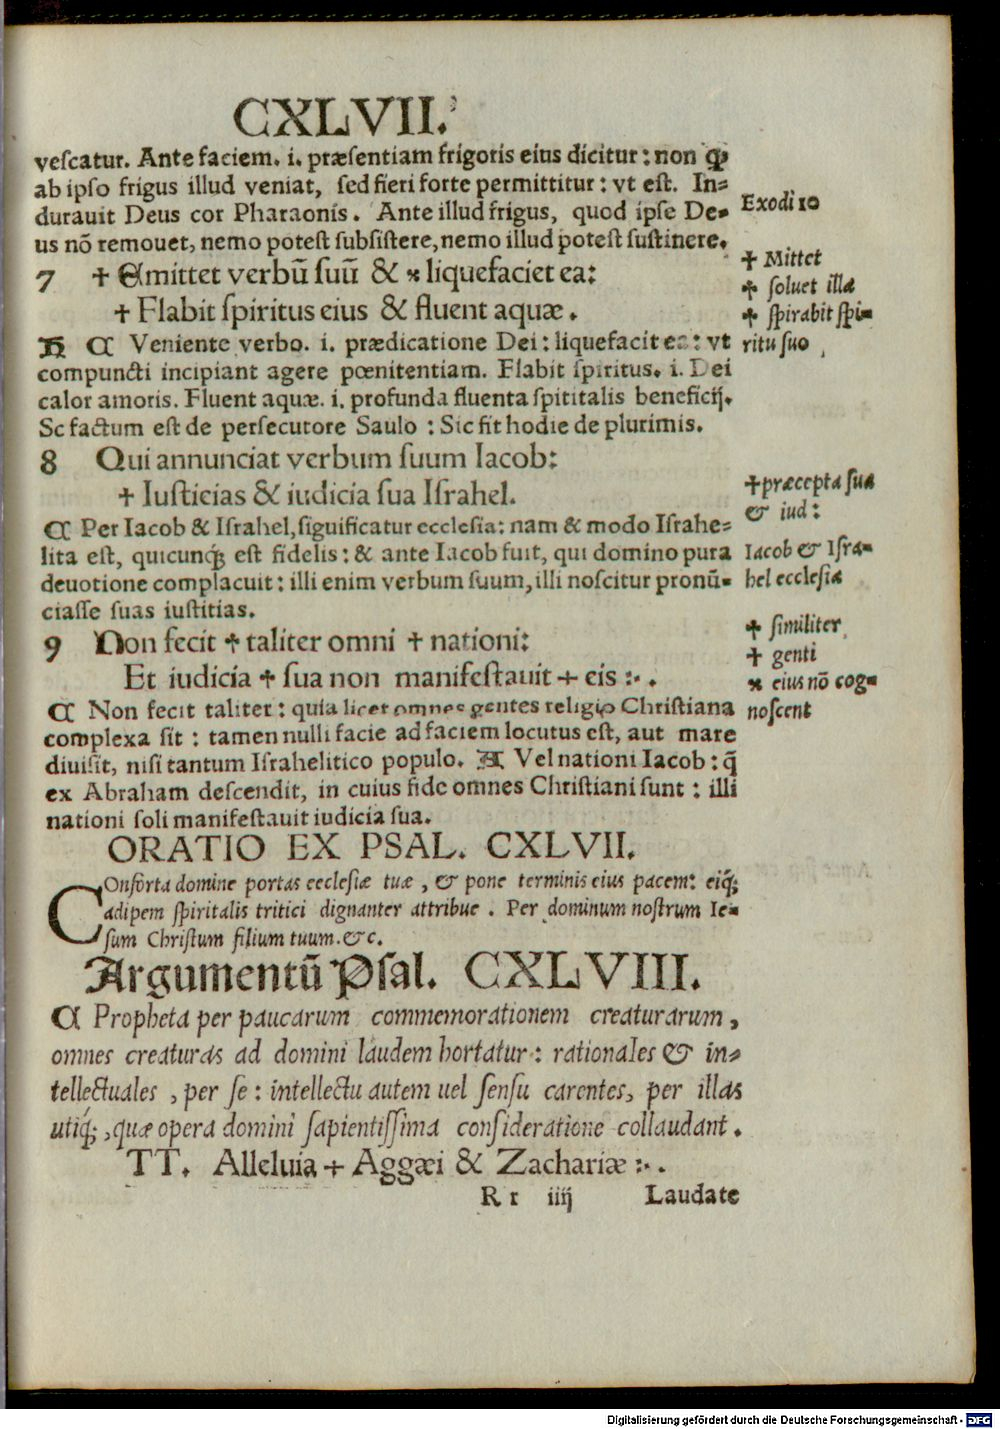 CXLVII.
vescatur. Ante faciem. i. præsentiam frigoris eius dicitur: non ꝙ
ab ipso frigus illud veniat, sed fieri forte permittitur: vt est. In=
durauit Deus cor Pharaonis. Ante illud frigus, quod ipse De-
us nõ remouet, nemo potest subsistere, nemo illud potest sustinere.
Exodi 10
7 ✝ Emittet verbũ suũ & ⁎ liquefaciet ea:
✝ Flabit spiritus eius & fluent aquæ.
✝ Mittet
✝ soluet illa
✝ spirabit spi-
ritu suo
H ¶ Veniente verbo. i. prædicatione Dei: liquefacit ea: vt
compuncti incipiant agere pœnitentiam. Flabit spiritus. i. Dei
calor amoris. Fluent aquæ. i. profunda fluenta spititalis beneficij.
Sc factum est de persecutore Saulo: Sic fit hodie de plurimis.
8 Qui annunciat verbum suum Iacob:
✝ Iusticias & iudicia sua Israhel.
✝ præcepta sua
& iud:
¶ Per Iacob & Israhel, siguificatur ecclesia: nam & modo Israhe=
lita est, quicunq́; est fidelis: & ante Iacob fuit, qui domino pura
deuotione complacuit: illi enim verbum suum, illi noscitur pronũ-
ciasse suas iustitias.
Iacob & Isra-
hel ecclesia
9 Non fecit ✝ taliter omni ✝ nationi:
Et iudicia ✝ sua non manifestauit ✝ eis :·.
✝ similiter
✝ genti
⁎ eius nõ cog-
noscent
¶ Non fecit taliter: quia licet omnes gentes religio Christiana
complexa sit: tamen nulli facie ad faciem locutus est, aut mare
diuisit, nisi tantum Israhelitico populo. A Vel nationi Iacob: q̃
ex Abraham descendit, in cuius fide omnes Christiani sunt: illi
nationi soli manifestauit iudicia sua.
ORATIO EX PSAL. CXLVII.
COnforta domine portas ecclesiæ tuæ, & pone terminis eius pacem: eiq́;
adipem spiritalis tritici dignanter attribue. Per dominum nostrum Ie-
sum Christum filium tuum. &c.
Argumentũ Psal. CXLVIII.
¶ Propheta per paucarum commemorationem creaturarum,
omnes creaturas ad domini laudem hortatur: rationales & in=
tellectuales, per se: intellectu autem uel sensu carentes, per illas
utiq́;, quæ opera domini sapientissima consideratione collaudant.
TT. Alleluia ✝ Aggæi & Zachariæ :·.
R r iiij Laudate
Digitalisierung gefördert durch die Deutsche Forschungsgemeinschaft - DFG